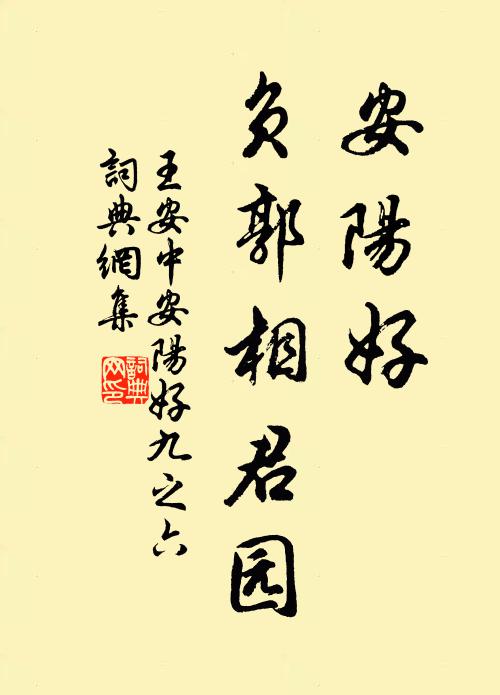 安陽好
负郭相君园
王安中安陽好九之六
詞典網集
詞典网印